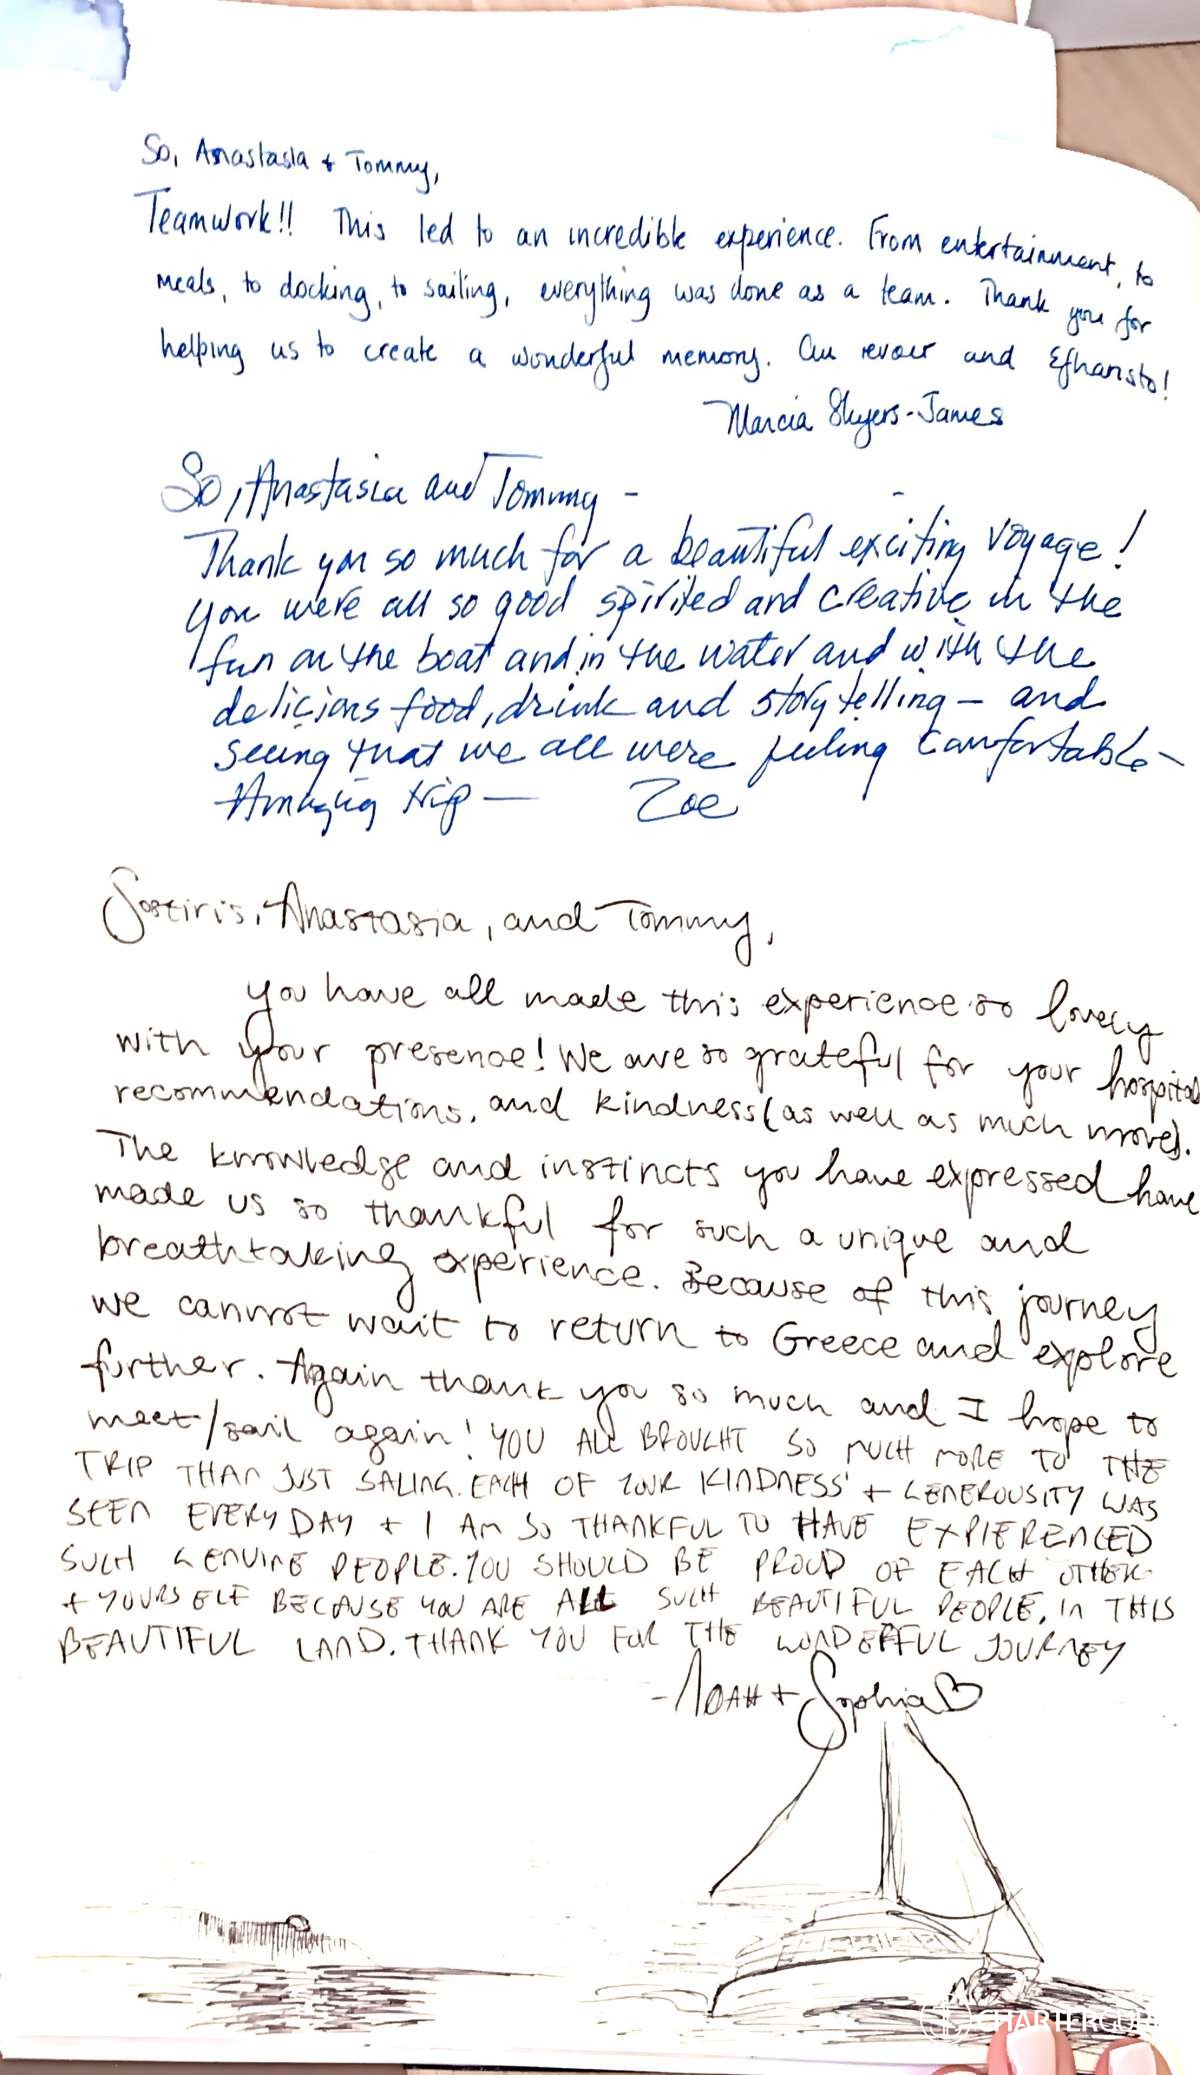 So, Anastasia + Tommy,
Teamwork!! This led to an incredible experience. From entertainment, to
meals, to docking, to sailing, everything was done as a team. Thank you for
helping us to create a wonderful memory. Au revoir and Efharisto!
Marcia Skyers-James
So, Anastasia and Tommy -
Thank you so much for a beautiful exciting voyage!
You were all so good spirited and creative in the
fun on the boat and in the water and with the
delicious food, drink and story telling - and
seeing that we all were feeling comfortable -
Amazing trip - Zoe
Sostiris, Anastasia, and Tommy,
You have all made this experience so lovely
with your presence! We are so grateful for your hospital
recommendations, and kindness (as well as much more).
The knowledge and instincts you have expressed have
made us so thankful for such a unique and
breathtaking experience. Because of this journey
we cannot wait to return to Greece and explore
further. Again thank you so much and I hope to
meet/sail again! YOU ALL BROUGHT SO MUCH MORE TO THE
TRIP THAN JUST SALING. EACH OF YOUR KINDNESS + GENEROUSITY WAS
SEEN EVERY DAY + I AM SO THANKFUL TO HAVE EXPIERENCED
SUCH GENUINE PEOPLE. YOU SHOULD BE PROUD OF EACH OTHER
+ YOURSELF BECAUSE YOU ARE ALL SUCH BEAUTIFUL PEOPLE, IN THIS
BEAUTIFUL LAND. THANK YOU FOR THE WONDERFUL JOURNEY
- NOAH + Sophia
CHARTERGURU